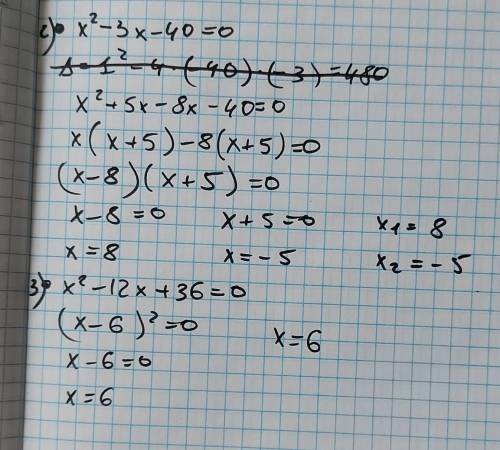 c) x² - 3x - 40 = 0
Δ = 1² - 4 · (40) · (-3) = 480
x² + 5x - 8x - 40 = 0
x(x + 5) - 8(x + 5) = 0
(x - 8)(x + 5) = 0
x - 8 = 0 x + 5 = 0 x₁ = 8
x = 8 x = - 5 x₂ = - 5
3) x² - 12x + 36 = 0
(x - 6)² = 0 x = 6
x - 6 = 0
x = 6